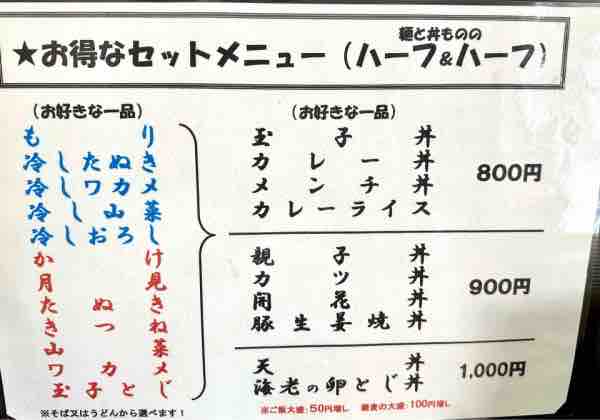 麺と丼ものの
★お得なセットメニュー（ハーフ&ハーフ）
（お好きな一品）
もり
冷したぬき
冷しワカメ
冷し山菜
冷しおろし
かけ
月見
たぬき
きつね
山菜
ワカメ
玉子とじ
※そば又はうどんから選べます！
（お好きな一品）
玉子丼
カレー丼
メンチ丼
カレーライス
800円
親子丼
カツ丼
開花丼
豚生姜焼丼
900円
天丼
海老の卵とじ丼
1,000円
※ご飯大盛：50円増し 麺類の大盛：100円増し